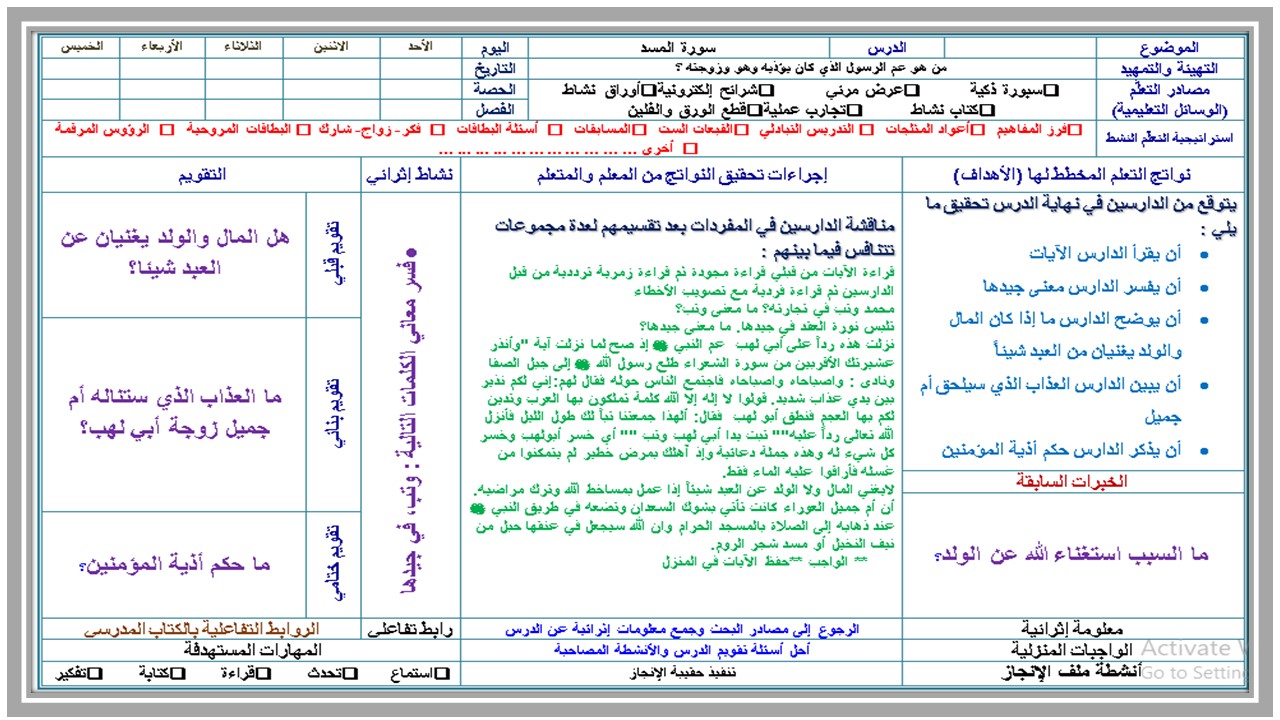 الموضوع
الدرس
سورة المسد
اليوم
الأحد
الاثنين
الثلاثاء
الأربعاء
الخميس
التهيئة والتمهيد
من هو عم الرسول الذي كان يؤذيه وهو وزوجته ؟
التاريخ
مصادر التعلّم
(الوسائل التعليمية)
□سبورة ذكية □عرض مرئي □شرائح إلكترونية□أوراق نشاط
□كتاب نشاط □تجارب عملية□قطع الورق والفلين
الحصة
الفصل
استراتيجية التعلّم النشط
□فرز المفاهيم □أعواد المثلجات □التدريس التبادلي □القبعات الست □المسابقات □ أسئلة البطاقات □ فكر- زواج- شارك □ البطاقات المروحية □ الرؤوس المرقمة
□ أخرى ... ... ... ... ... ... ... ... ... ... ...
نواتج التعلم المخطط لها (الأهداف)
إجراءات تحقيق النواتج من المعلم والمتعلم
نشاط إثرائي
التقويم
يتوقع من الدارسين في نهاية الدرس تحقيق ما
يلي :
• أن يقرأ الدارس الآيات
• أن يفسر الدارس معنى جيدها
• أن يوضح الدارس ما إذا كان المال
والولد يغنيان من العبد شيئاً
• أن يبين الدارس العذاب الذي سيلحق أم
جميل
• أن يذكر الدارس حكم أذية المؤمنين
الخبرات السابقة
ما السبب استغناء الله عن الولد؟
مناقشة الدارسين في المفردات بعد تقسيمهم لعدة مجموعات
تتنافس فيما بينهم :
قراءة الآيات من قبلي قراءة مجودة ثم قراءة زمرية ترددية من قبل
الدارسين ثم قراءة فردية مع تصويب الأخطاء
محمد وتب في تجارته؟ ما معنى وتب؟
تلبس نورة العقد في جيدها. ما معنى جيدها؟
نزلت هذه رداً على أبي لهب عم النبي ﷺ إذ صح لما نزلت آية "وأنذر
عشيرتك الأقربين من سورة الشعراء طلع رسول الله ﷺ إلى جبل الصفا
ونادى : واصباحاه واصباحاه فاجتمع الناس حوله فقال لهم:إني لكم نذير
بين يدي عذاب شديد. قولوا لا إله إلا الله كلمة تملكون بها العرب وتدين
لكم بها العجم فنطق أبو لهب فقال: ألهذا جمعتنا تباً لك طول الليل فأنزل
الله تعالى رداً عليه"" تبت يدا أبي لهب وتب "" أي خسر أبولهب وخسر
كل شيء له وهذه جملة دعائية وإذ أهلك بمرض خطير لم يتمكنوا من
غسله فأراقوا عليه الماء فقط.
لايغني المال ولا الولد عن العبد شيئاً إذا عمل بمساخط الله وترك مراضيه.
أن أم جميل العوراء كانت تأتي بشوك السعدان وتضعه في طريق النبي ﷺ
عند ذهابه إلى الصلاة بالمسجد الحرام وان الله سيجعل في عنقها حبل من
ليف النخيل أو مسد شجر الروم.
** الواجب **حفظ الآيات في المنزل
•فسر معاني الكلمات التالية : وتب، في جيدها
تقويم قبلي
هل المال والولد يغنيان عن
العبد شيئا؟
تقويم بنائي
ما العذاب الذي ستناله أم
جميل زوجة أبي لهب؟
تقويم ختامي
ما حكم أذية المؤمنين؟
معلومة إثرائية
الرجوع إلى مصادر البحث وجمع معلومات إثرائية عن الدرس
رابط تفاعلي
الروابط التفاعلية بالكتاب المدرسي
الواجبات المنزلية
أحل أسئلة تقويم الدرس والأنشطة المصاحبة
المهارات المستهدفة
أنشطة ملف الإنجاز
تنفيذ حقيبة الإنجاز
□استماع □تحدث □قراءة □كتابة □تفكير
Activate
Go to Setting